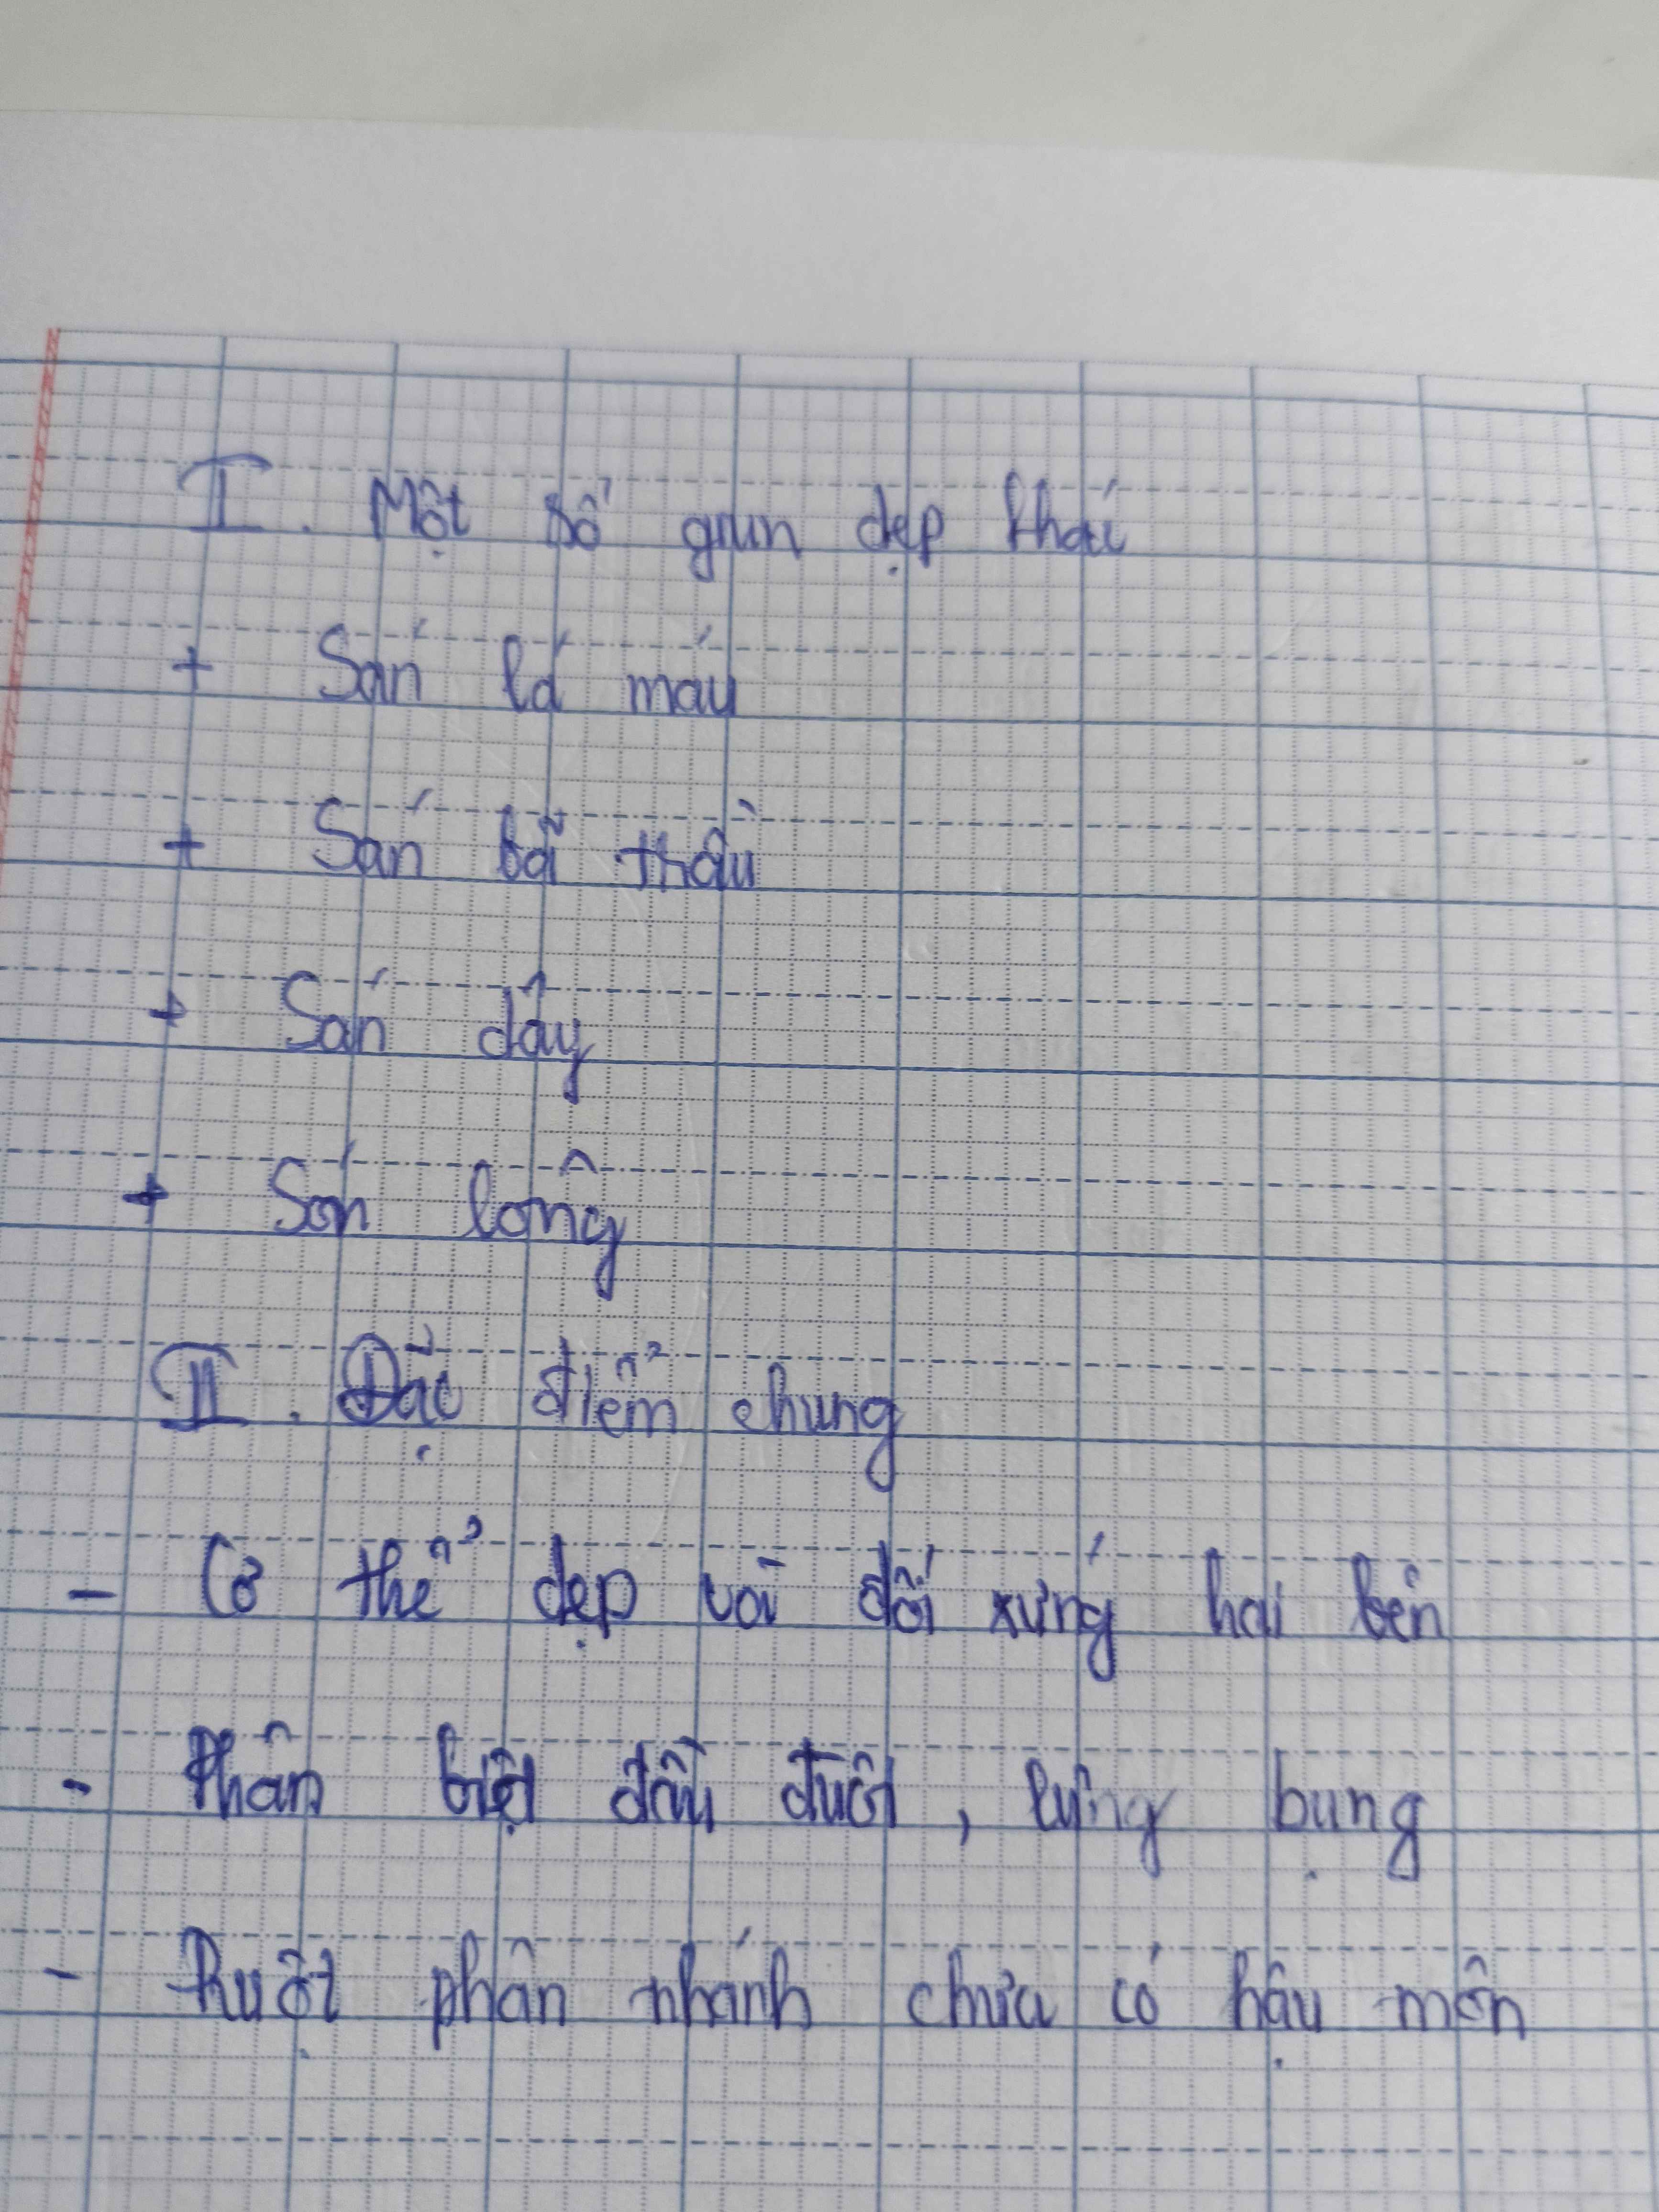 I. Một số giun dẹp khác
+ Sán lá máu
+ Sán bã trầu
+ Sán dây
+ Sán lông
II. Đặc điểm chung
- Cơ thể dẹp và đối xứng hai bên
- Phân biệt đầu đuôi, lưng bụng
- Ruột phân nhánh chưa có hậu môn